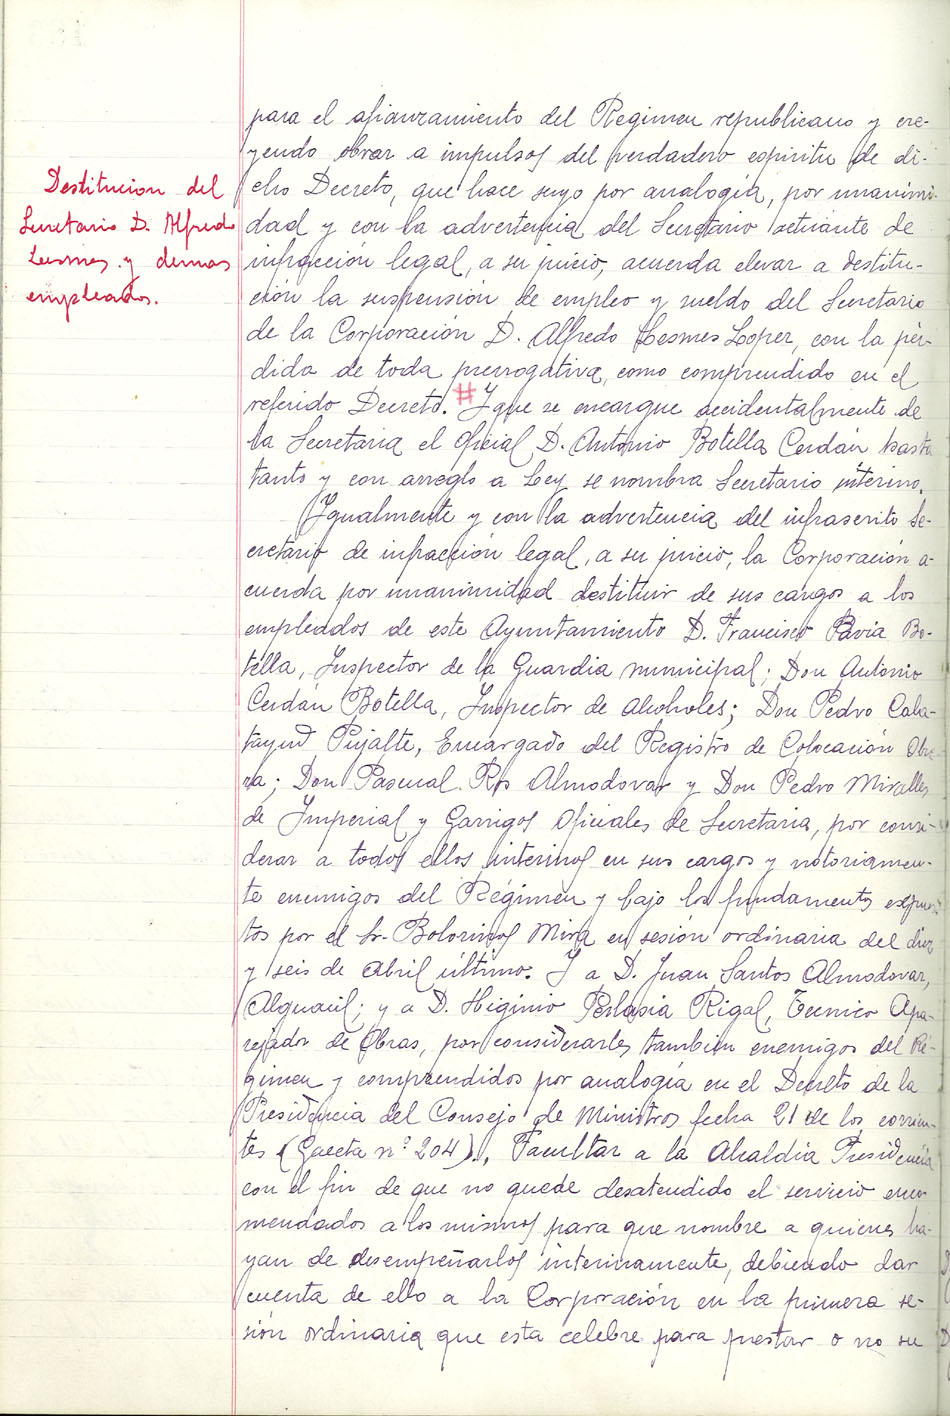 para el afianzamiento del Regimen republicano y cre-
yendo obrar a impulsos del verdadero espiritu de di-
cho Decreto, que hace suyo por analogía, por unanimi-
dad y con la advertencia del Secretario actuante de
infracción legal, a su juicio, acuerda elevar a destitu-
ción la suspensión de empleo y sueldo del Secretario
de la Corporación D. Alfredo Lesmes Lopez, con la pér-
dida de toda prerrogativa, como comprendido en el
referido Decreto. # Y que se encargue accidentalmente de
la Secretaria el oficial D. Antonio Botella Cerdán hasta
tanto y con arreglo a Ley se nombra Secretario interino.
Igualmente y con la advertencia del infrascrito Se-
cretario de infracción legal, a su juicio, la Corporación a-
cuerda por unanimidad destituir de sus cargos a los
empleados de este Ayuntamiento D. Francisco Pavia Bo-
tella, Inspector de la Guardia municipal; Don Antonio
Cerdán Botella, Inspector de Alcoholes; Don Pedro Cala-
tayud Pujalte, Encargado del Registro de Colocación Obre-
ra; Don Pascual Ros Almodovar y Don Pedro Miralles
de Imperial y Garrigos Oficiales de Secretaria, por consi-
derar a todos ellos interinos en sus cargos y notoriamen-
te enemigos del Régimen y bajo los fundamentos expues-
tos por el Sr. Bolorinos Mira en sesión ordinaria del diez
y seis de Abril último. Y a D. Juan Santos Almodovar,
Alguacil; y a D. Higinio Perlasia Rigal, Tecnico Apa-
rejador de Obras, por considerarles tambien enemigos del Ré-
gimen y comprendidos por analogía en el Decreto de la
Presidencia del Consejo de Ministros fecha 21 de los corrien-
tes (Gaceta nº 204)., Facultar a la Alcaldia Presidencia
con el fin de que no quede desatendido el servicio enco-
mendados a los mismos para que nombre a quienes ha-
yan de desempeñarlos interinamente, debiendo dar
cuenta de ello a la Corporación en la primera se-
sión ordinaria que esta celebre para prestar o no su
Destitucion del
Secretario D. Alfredo
Lesmes y demas
empleados.